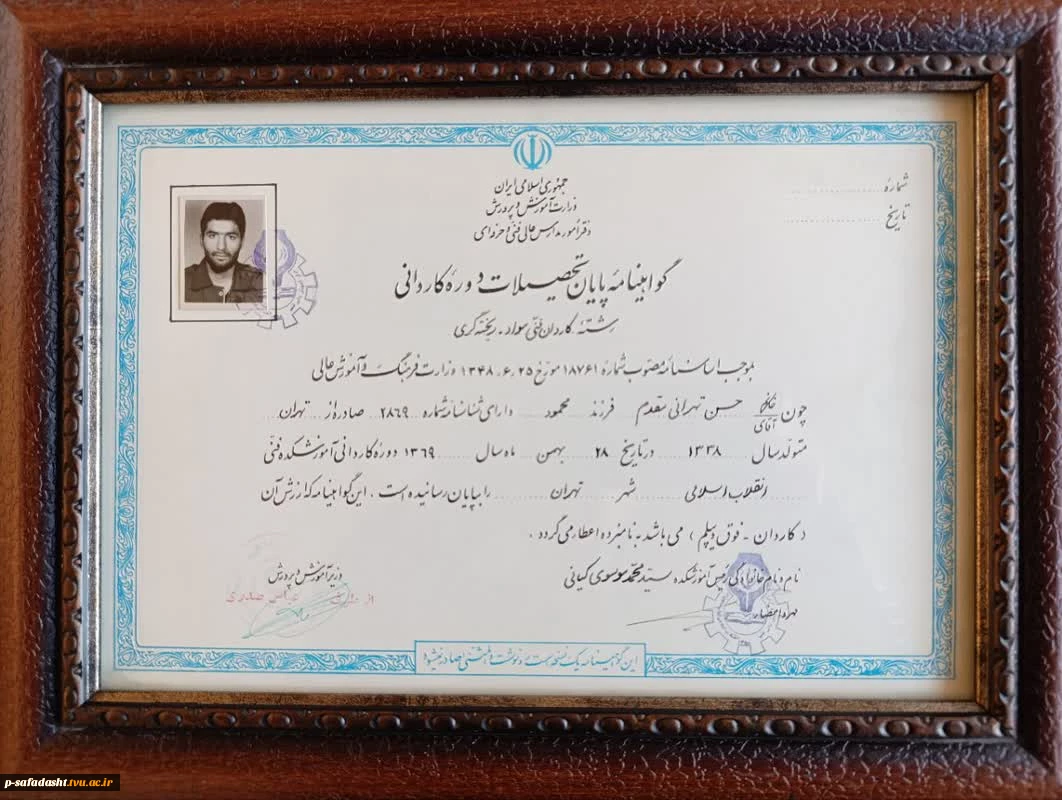 جمهوری اسلامی ایران
وزارت آموزش و پرورش
دفتر امور مدارس عالی فنی و حرفه‌ای
شمارهٔ
تاریخ
گواهینامهٔ پایان تحصیلات دورهٔ کاردانی
رشتهٔ کاردان فنی مواد - ریخته گری
بموجب اساسنامهٔ مصوب شمارهٔ ۱۸۷۶۱ مورّخ ۱۳۴۸.۶.۲۵ وزارت فرهنگ و آموزش عالی
چون خانم آقای حسن تهرانی مقدم فرزند محمود دارای شناسنامه شماره ۲۸۶۹ صادره از تهران
متولّد سال ۱۳۳۸ در تاریخ ۲۸ بهمن ماه سال ۱۳۶۹ دورهٔ کاردانی آموزشکده فنّی
انقلاب اسلامی شهر تهران را بپایان رسانیده است ، این گواهینامه که ارزش آن
( کاردان - فوق دیپلم ) می باشد به نامبرده اعطا می گردد .
نام و نام خانوادگی رئیس آموزشکده سیّد محمّد موسوی کیانی
مهر و امضاء
وزیر آموزش و پرورش
از طرف عباس صدری
این گواهینامه یک نسخه است و رونوشت یا المثنی صادر نمیشود
p-safadasht.tvu.ac.ir